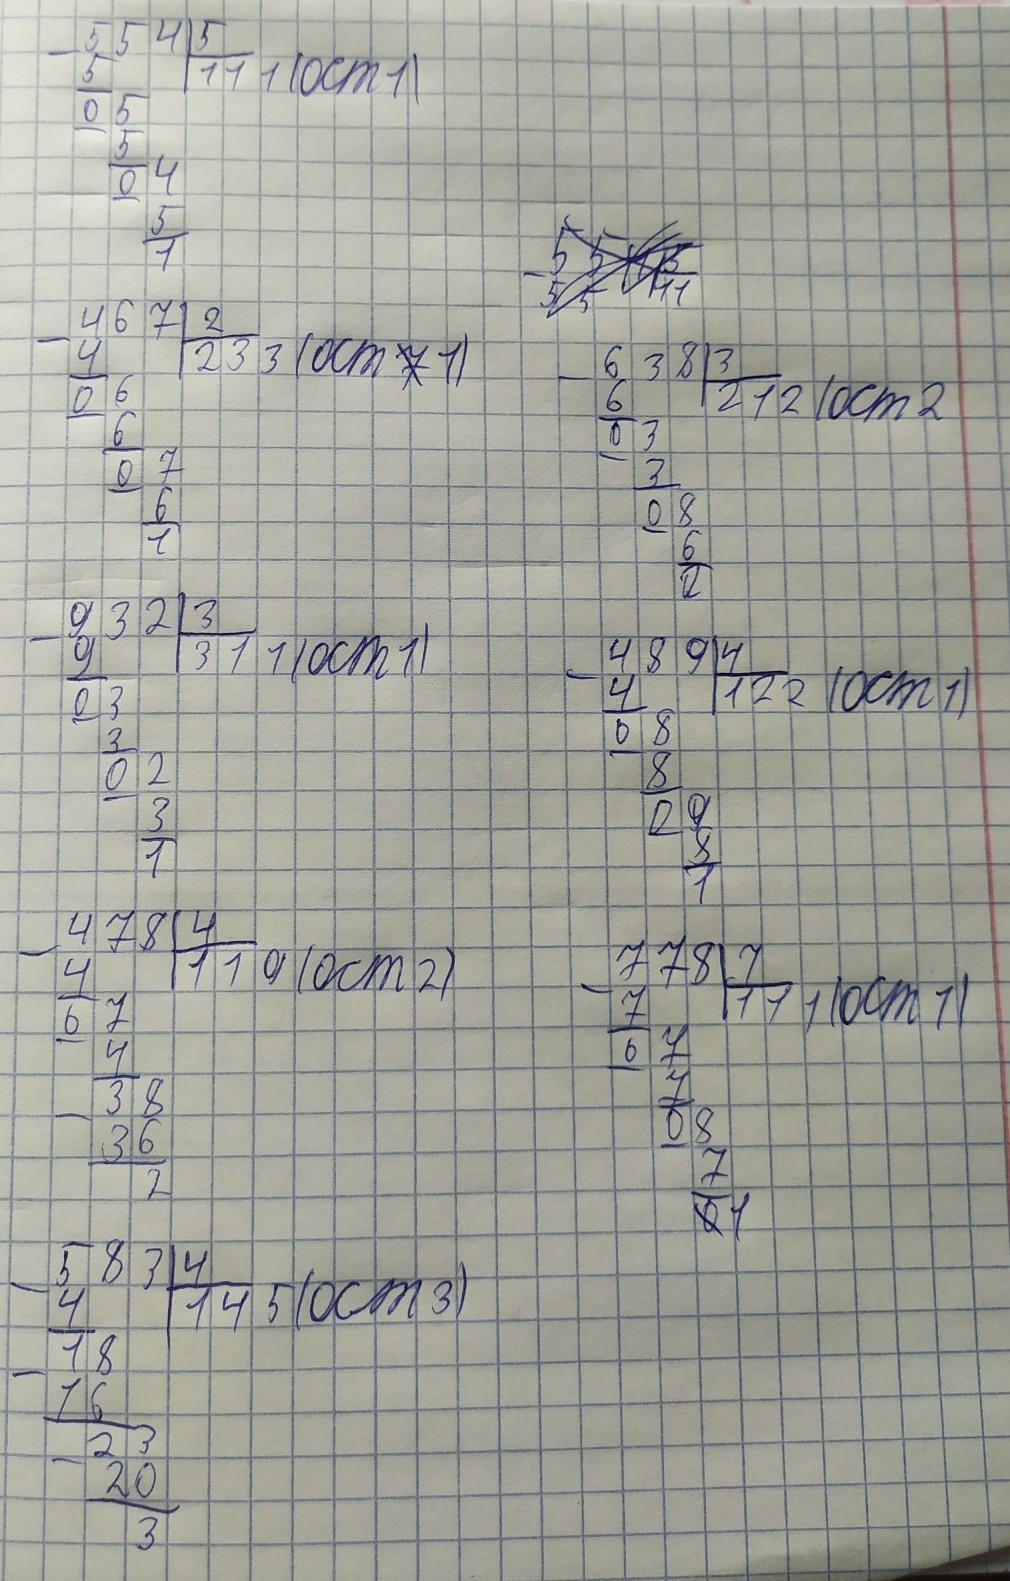 554|5
5 111(ост 1)
05
5
04
5
1
467|2
4 233(ост 1)
06
6
07
6
1
638|3
6 212(ост 2
03
3
08
6
2
932|3
9 311(ост 1)
03
3
02
3
1
489|4
4 122(ост 1)
08
8
09
8
1
478|4
4 119(ост 2)
07
4
38
36
2
778|7
7 111(ост 1)
07
7
08
7
1
583|4
4 145(ост 3)
18
16
23
20
3